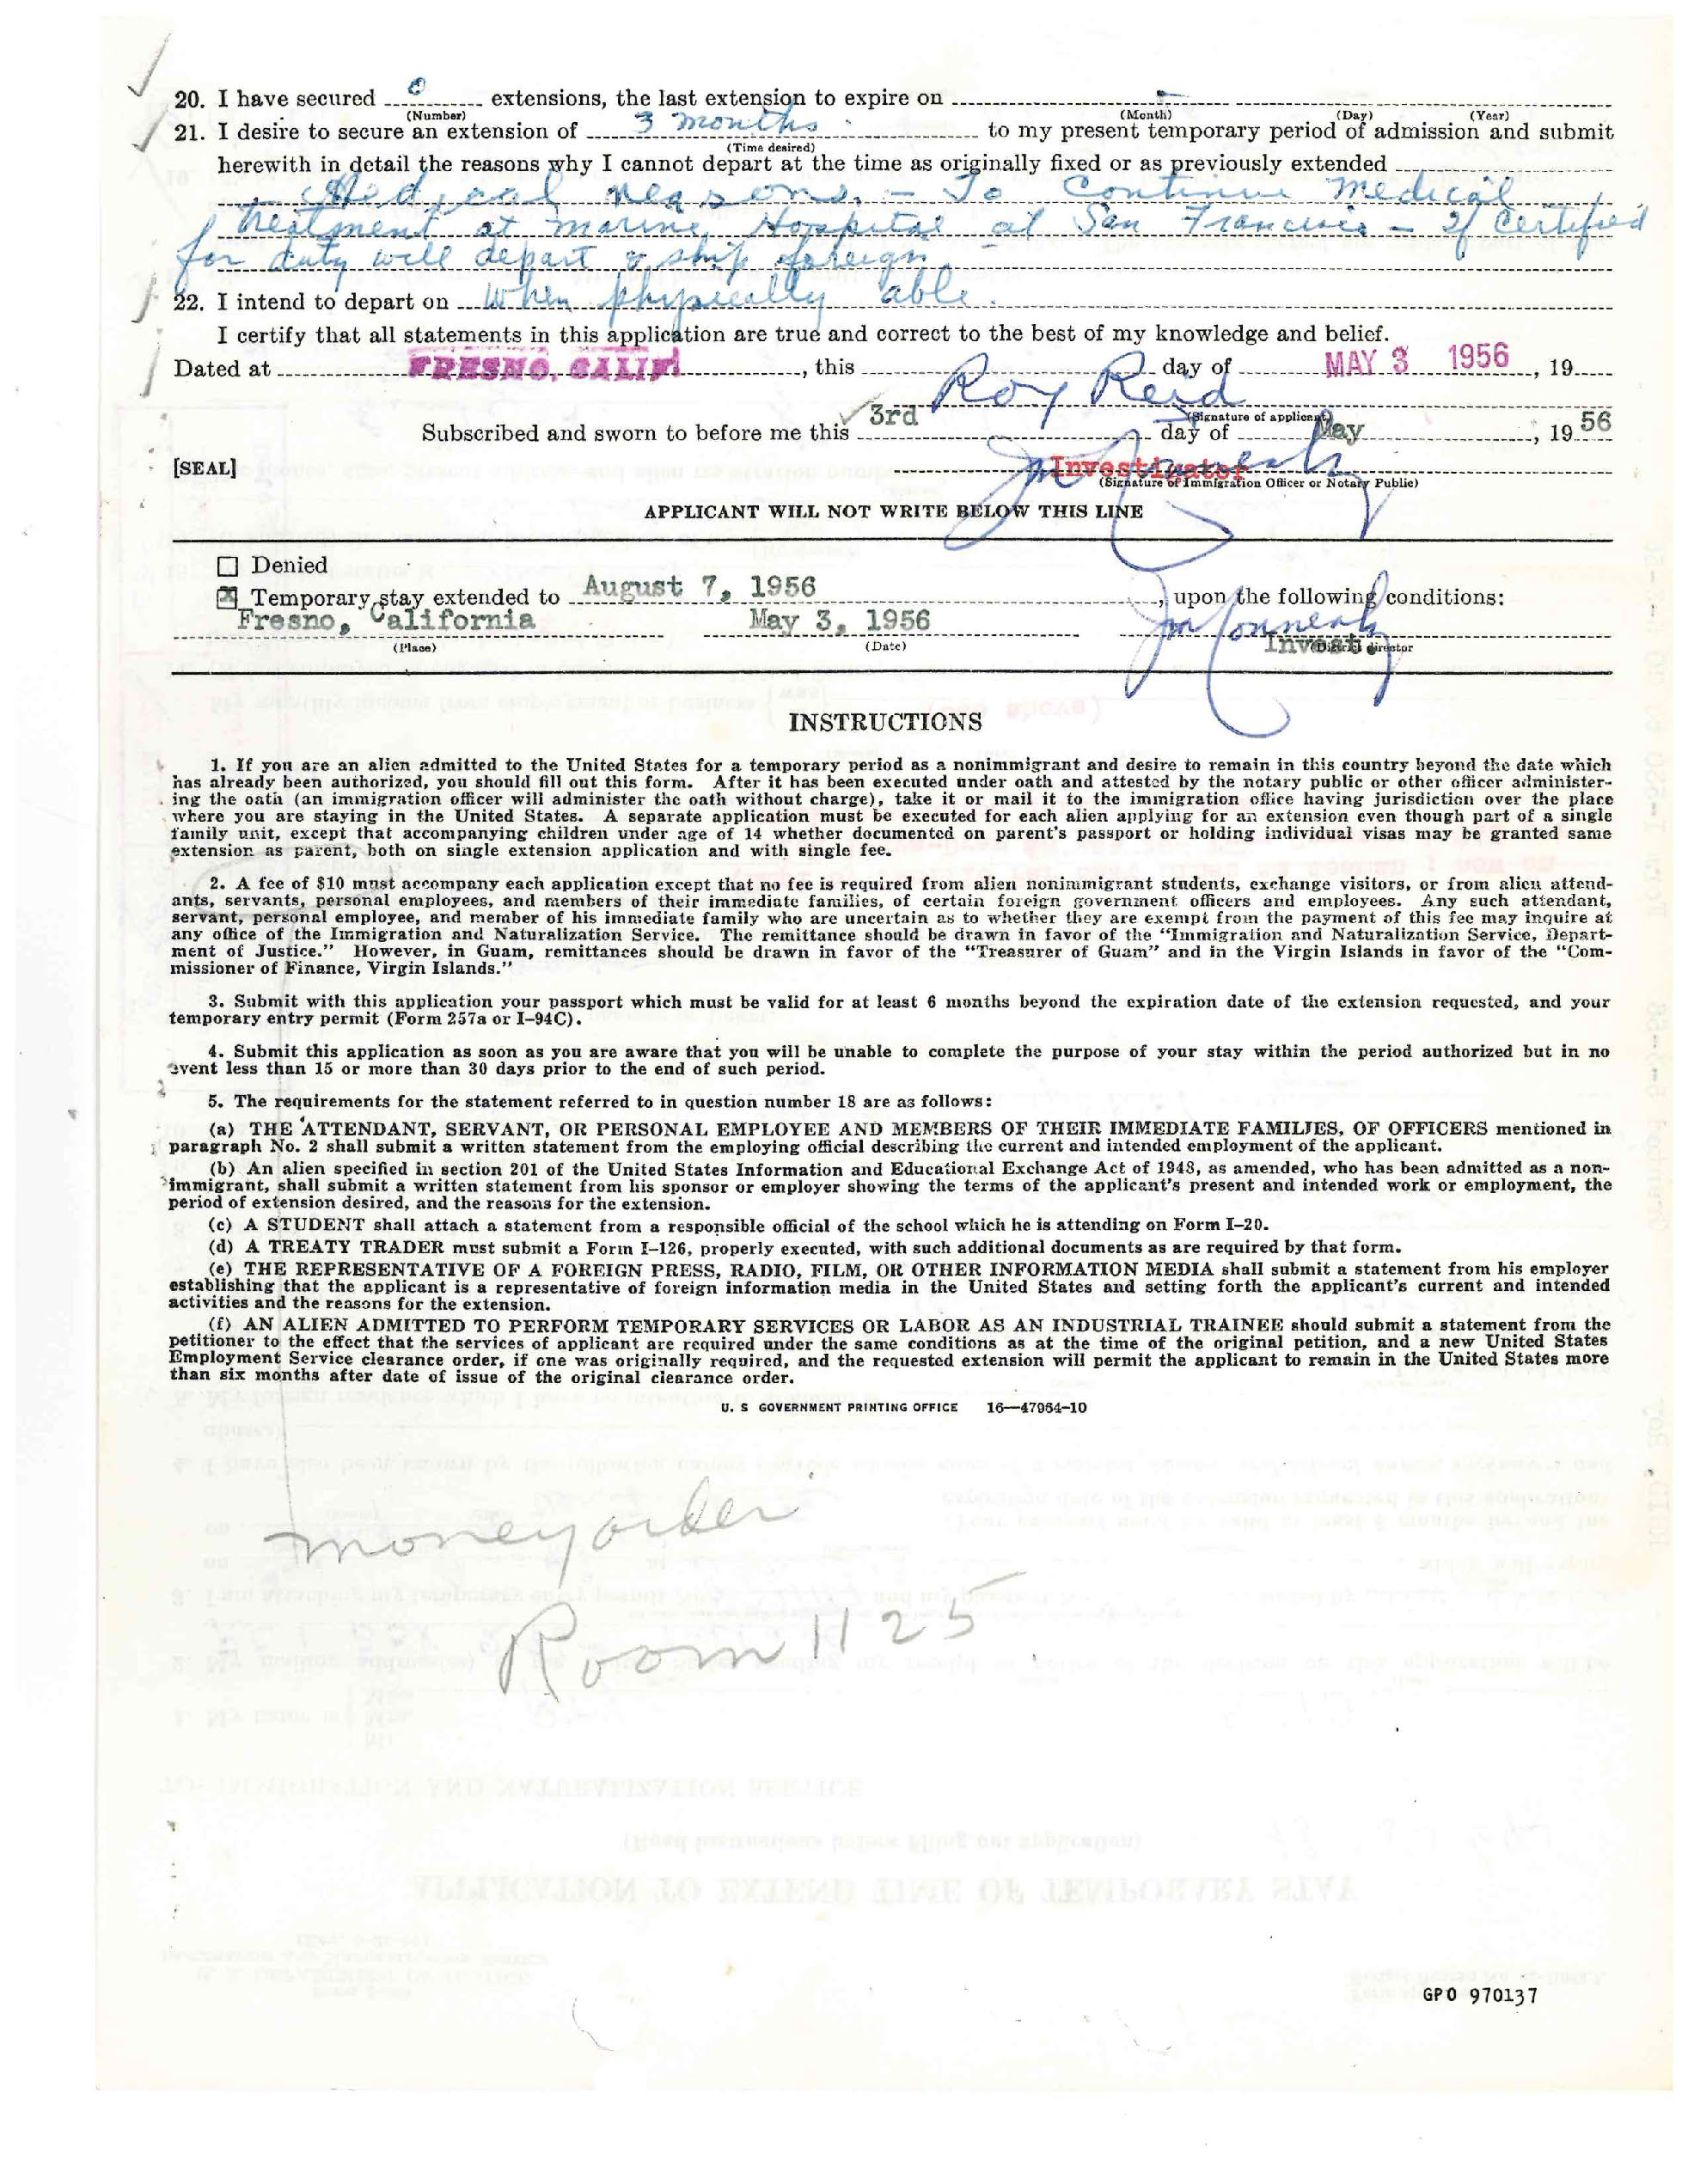 20. I have secured 0 extensions, the last extension to expire on -
(Number) (Month) (Day) (Year)
21. I desire to secure an extension of 3 months to my present temporary period of admission and submit
(Time desired)
herewith in detail the reasons why I cannot depart at the time as originally fixed or as previously extended
Medical reasons. - To continue medical
treatment at Marine Hospital at San Francisco - If certified
for duty will depart & ship foreign
22. I intend to depart on When physically able.
I certify that all statements in this application are true and correct to the best of my knowledge and belief.
Dated at FRESNO, CALIF. , this day of MAY 3 1956 , 19
Roy Reid
(Signature of applicant)
Subscribed and sworn to before me this 3rd day of May , 19 56
[SEAL]
Investigator
(Signature of Immigration Officer or Notary Public)
APPLICANT WILL NOT WRITE BELOW THIS LINE
Denied
Temporary stay extended to August 7, 1956 , upon the following conditions:
Fresno, California May 3, 1956
(Place) (Date) Invest. District director
INSTRUCTIONS
1. If you are an alien admitted to the United States for a temporary period as a nonimmigrant and desire to remain in this country beyond the date which
has already been authorized, you should fill out this form. After it has been executed under oath and attested by the notary public or other officer administer-
ing the oath (an immigration officer will administer the oath without charge), take it or mail it to the immigration office having jurisdiction over the place
where you are staying in the United States. A separate application must be executed for each alien applying for an extension even though part of a single
family unit, except that accompanying children under age of 14 whether documented on parent's passport or holding individual visas may be granted same
extension as parent, both on single extension application and with single fee.
2. A fee of $10 must accompany each application except that no fee is required from alien nonimmigrant students, exchange visitors, or from alien attend-
ants, servants, personal employees, and members of their immediate families, of certain foreign government officers and employees. Any such attendant,
servant, personal employee, and member of his immediate family who are uncertain as to whether they are exempt from the payment of this fee may inquire at
any office of the Immigration and Naturalization Service. The remittance should be drawn in favor of the “Immigration and Naturalization Service, Depart-
ment of Justice.” However, in Guam, remittances should be drawn in favor of the “Treasurer of Guam” and in the Virgin Islands in favor of the “Com-
missioner of Finance, Virgin Islands.”
3. Submit with this application your passport which must be valid for at least 6 months beyond the expiration date of the extension requested, and your
temporary entry permit (Form 257a or I–94C).
4. Submit this application as soon as you are aware that you will be unable to complete the purpose of your stay within the period authorized but in no
event less than 15 or more than 30 days prior to the end of such period.
5. The requirements for the statement referred to in question number 18 are as follows:
(a) THE ATTENDANT, SERVANT, OR PERSONAL EMPLOYEE AND MEMBERS OF THEIR IMMEDIATE FAMILIES, OF OFFICERS mentioned in
paragraph No. 2 shall submit a written statement from the employing official describing the current and intended employment of the applicant.
(b) An alien specified in section 201 of the United States Information and Educational Exchange Act of 1948, as amended, who has been admitted as a non-
immigrant, shall submit a written statement from his sponsor or employer showing the terms of the applicant's present and intended work or employment, the
period of extension desired, and the reasons for the extension.
(c) A STUDENT shall attach a statement from a responsible official of the school which he is attending on Form I–20.
(d) A TREATY TRADER must submit a Form I–126, properly executed, with such additional documents as are required by that form.
(e) THE REPRESENTATIVE OF A FOREIGN PRESS, RADIO, FILM, OR OTHER INFORMATION MEDIA shall submit a statement from his employer
establishing that the applicant is a representative of foreign information media in the United States and setting forth the applicant's current and intended
activities and the reasons for the extension.
(f) AN ALIEN ADMITTED TO PERFORM TEMPORARY SERVICES OR LABOR AS AN INDUSTRIAL TRAINEE should submit a statement from the
petitioner to the effect that the services of applicant are required under the same conditions as at the time of the original petition, and a new United States
Employment Service clearance order, if one was originally required, and the requested extension will permit the applicant to remain in the United States more
than six months after date of issue of the original clearance order.
U. S GOVERNMENT PRINTING OFFICE 16—47964-10
money order
Room 1125
GPO 970137